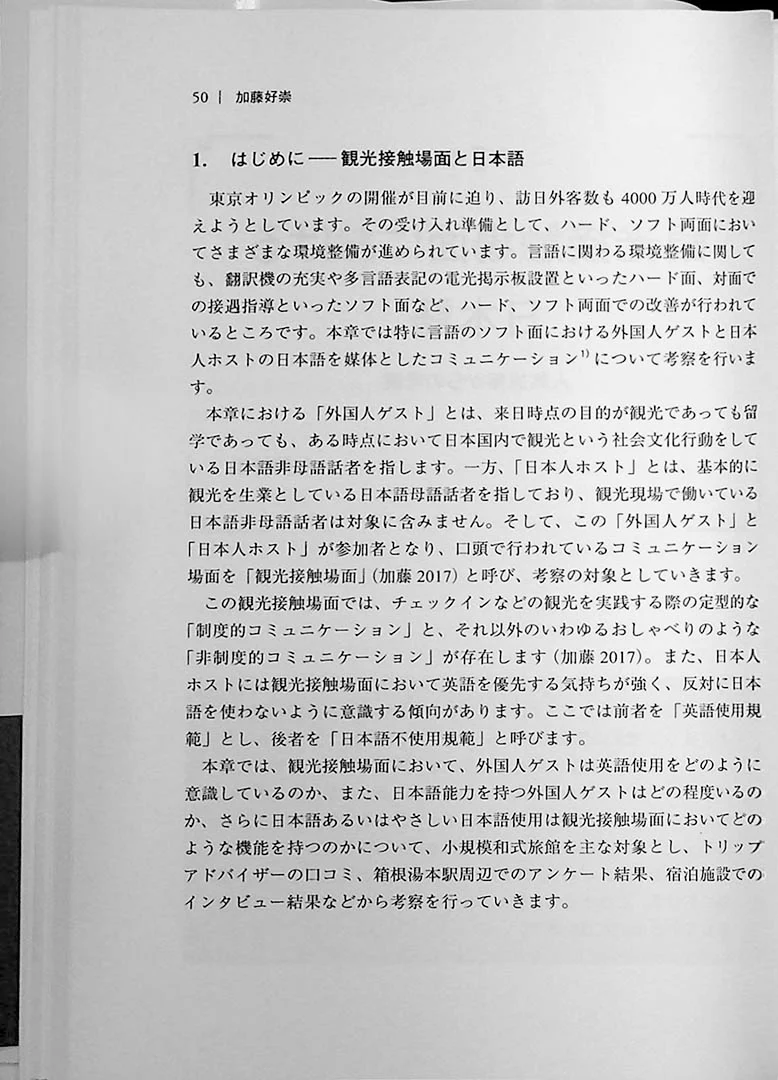 50 | 加藤好崇
1. はじめに――観光接触場面と日本語
東京オリンピックの開催が目前に迫り、訪日外客数も 4000 万人時代を迎
えようとしています。その受け入れ準備として、ハード、ソフト両面におい
てさまざまな環境整備が進められています。言語に関わる環境整備に関して
も、翻訳機の充実や多言語表記の電光掲示板設置といったハード面、対面で
の接遇指導といったソフト面など、ハード、ソフト両面での改善が行われて
いるところです。本章では特に言語のソフト面における外国人ゲストと日本
人ホストの日本語を媒体としたコミュニケーション1)について考察を行いま
す。
本章における「外国人ゲスト」とは、来日時点の目的が観光であっても留
学であっても、ある時点において日本国内で観光という社会文化行動をして
いる日本語非母語話者を指します。一方、「日本人ホスト」とは、基本的に
観光を生業としている日本語母語話者を指しており、観光現場で働いている
日本語非母語話者は対象に含みません。そして、この「外国人ゲスト」と
「日本人ホスト」が参加者となり、口頭で行われているコミュニケーション
場面を「観光接触場面」(加藤 2017) と呼び、考察の対象としていきます。
この観光接触場面では、チェックインなどの観光を実践する際の定型的な
「制度的コミュニケーション」と、それ以外のいわゆるおしゃべりのような
「非制度的コミュニケーション」が存在します (加藤 2017)。また、日本人
ホストには観光接触場面において英語を優先する気持ちが強く、反対に日本
語を使わないように意識する傾向があります。ここでは前者を「英語使用規
範」とし、後者を「日本語不使用規範」と呼びます。
本章では、観光接触場面において、外国人ゲストは英語使用をどのように
意識しているのか、また、日本語能力を持つ外国人ゲストはどの程度いるの
か、さらに日本語あるいはやさしい日本語使用は観光接触場面においてどの
ような機能を持つのかについて、小規模和式旅館を主な対象とし、トリップ
アドバイザーの口コミ、箱根湯本駅周辺でのアンケート結果、宿泊施設での
インタビュー結果などから考察を行っていきます。